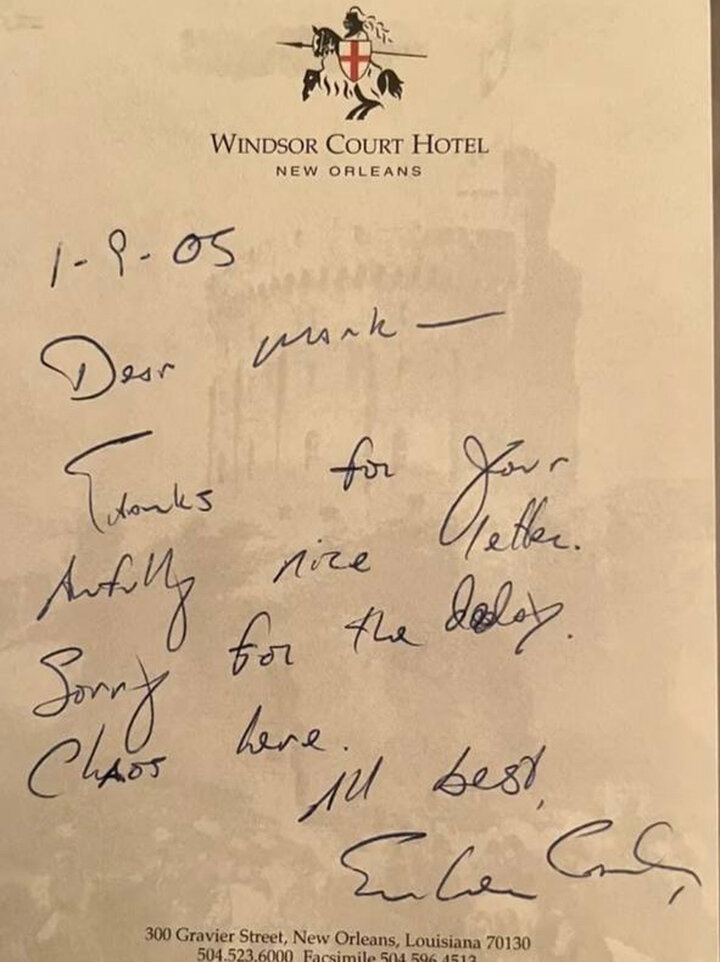 WINDSOR COURT HOTEL
NEW ORLEANS
1-9-05
Dear Mark —
Thanks for your
Awfully nice letter.
Sorry for the delay.
Chaos here.
All best,
300 Gravier Street, New Orleans, Louisiana 70130
504.523.6000 Facsimile 504.596.4513